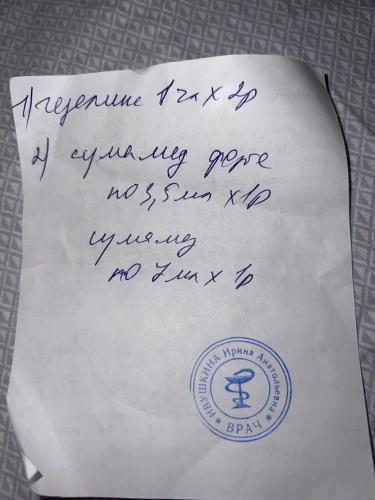 1) геделикс 1 чл х 2р
2) сумамед форте
по 3,5 мл х 1р
сумамед
по 7 мл х 1р
ИВУШКИНА Ирина Анатольевна
ВРАЧ